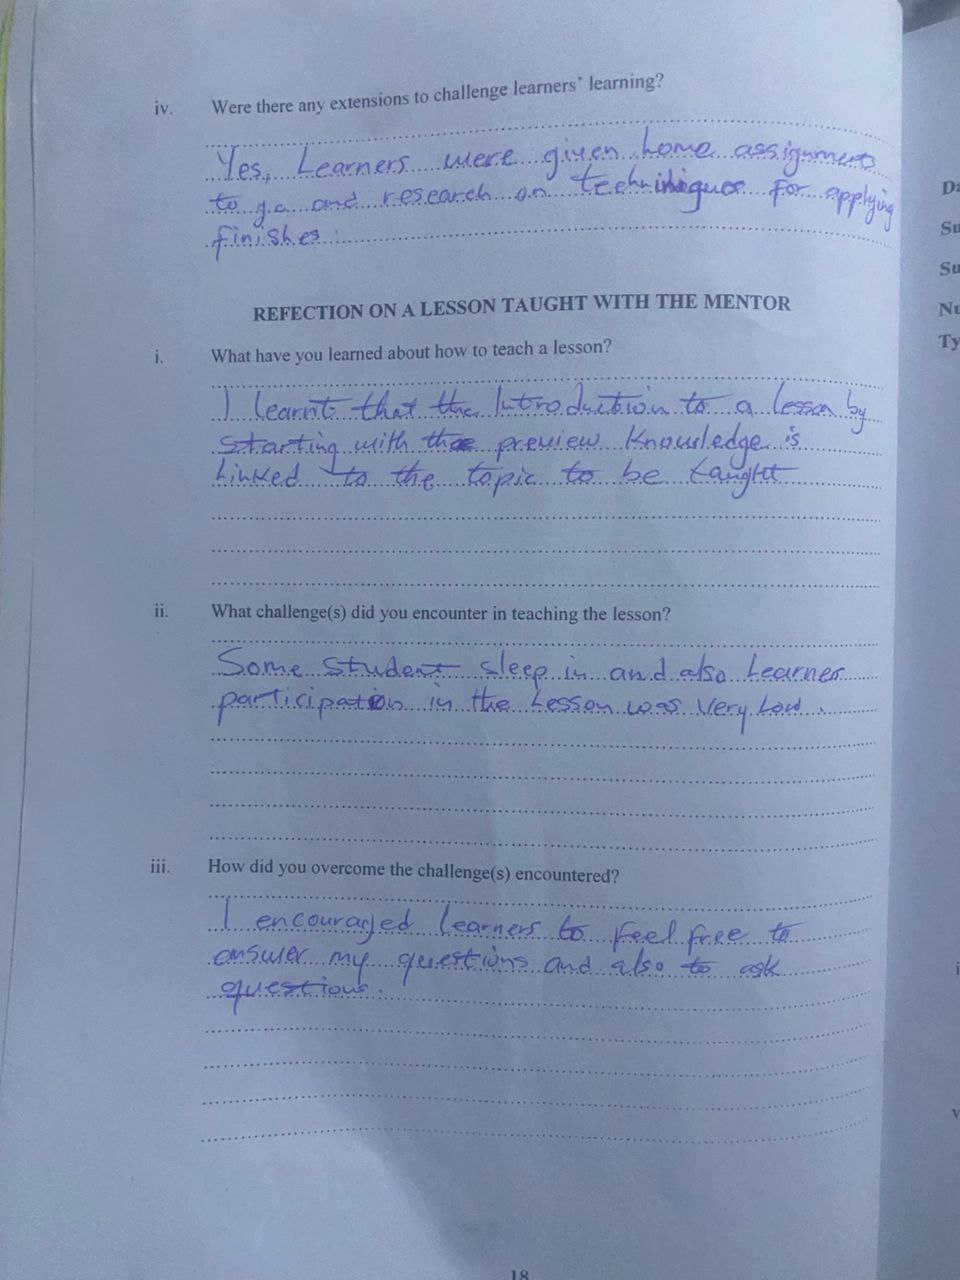 iv. Were there any extensions to challenge learners' learning?
Yes, Learners were given home assignment
to go and research on techniques for applying
finishes.
REFECTION ON A LESSON TAUGHT WITH THE MENTOR
i. What have you learned about how to teach a lesson?
I learnt that the Introduction to a lesson by
starting with the preview knowledge is
Linked to the topic to be taught
ii. What challenge(s) did you encounter in teaching the lesson?
Some student sleep in and also Learner
participation in the Lesson was Very Low.
iii. How did you overcome the challenge(s) encountered?
I encouraged learners to feel free to
answer my questions and also to ask
questions.
18
Su
Su
Ty